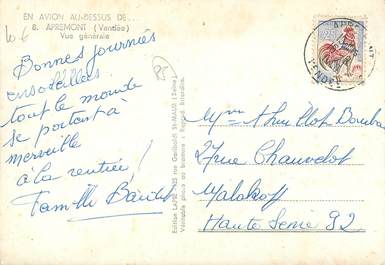 EN AVION AU-DESSUS DE...
8. APREMONT (Vendée)
Vue générale
Bonnes journées
ensoleillées
tout le monde
se portent à
merveille
à la rentrée!
Famille
85
Edition LAPIE 125 rue Garibaldi St-MAUR (Seine)
Véritable photo au bromure - Reprod. interdite
APREMONT
VENDEE
Mme
27 rue Chauvelot
Malakoff
Haute Seine 92